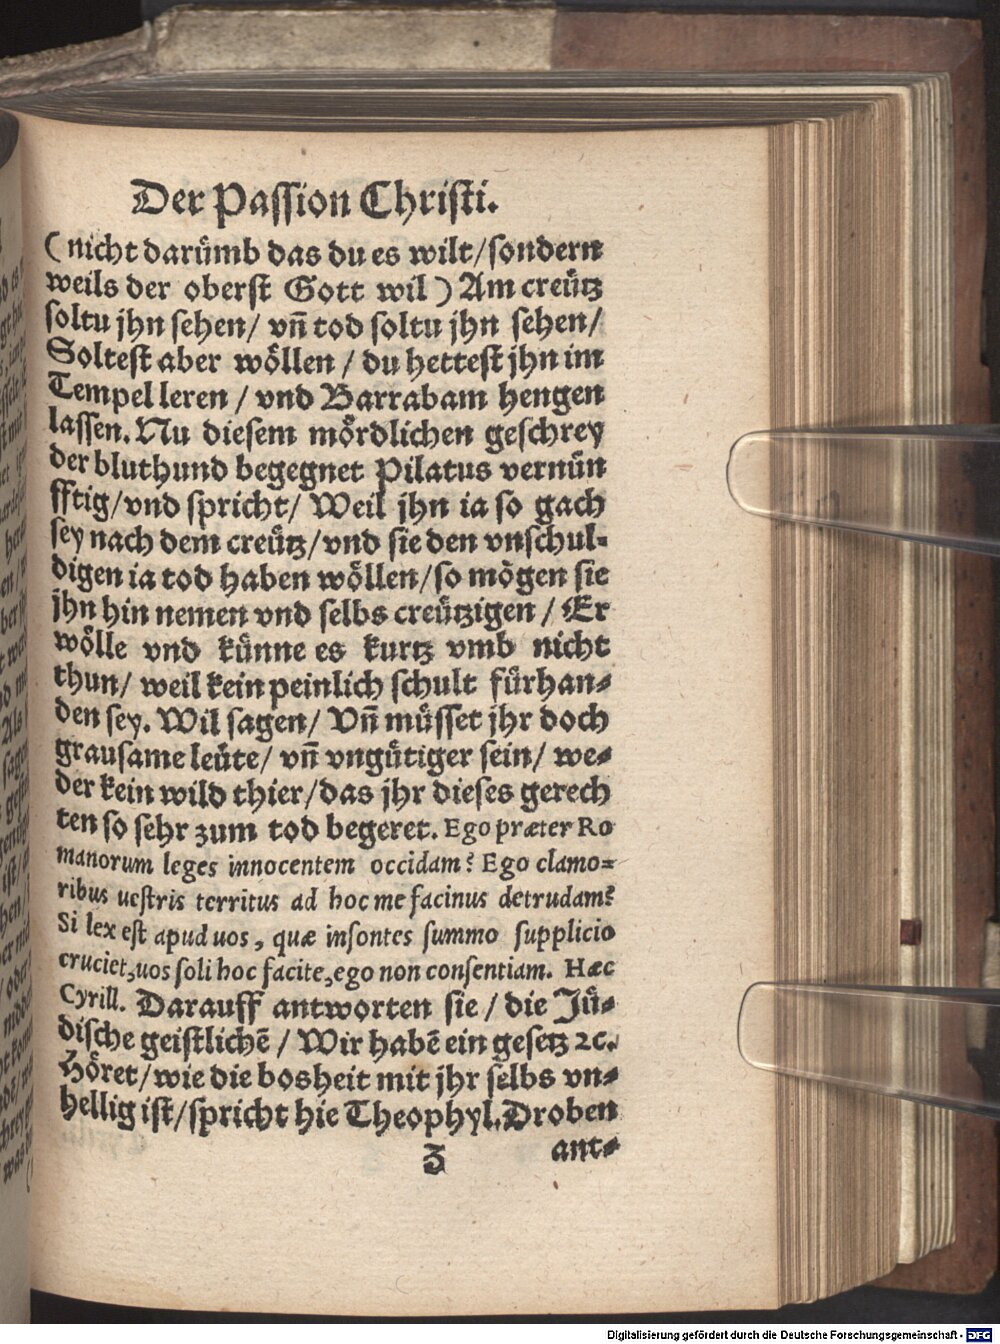 Der Passion Christi.
( nicht darümb das du es wilt/sondern
weils der oberst Gott wil ) Am creütz
soltu jhn sehen/ vñ tod soltu jhn sehen/
Soltest aber wöllen / du hettest jhn im
Tempel leren / vnd Barrabam hengen
lassen. Nu diesem mördlichen geschrey
der bluthund begegnet Pilatus vernün
fftig/vnd spricht/ Weil jhn ia so gach
sey nach dem creütz/vnd sie den vnschul-
digen ia tod haben wöllen/so mögen sie
jhn hin nemen vnd selbs creützigen / Er
wölle vnd künne es kurtz vmb nicht
thun/ weil kein peinlich schult fürhan-
den sey. Wil sagen/ Vñ müsset jhr doch
grausame leüte/ vñ vngütiger sein/ we-
der kein wild thier/das jhr dieses gerech
ten so sehr zum tod begeret. Ego præter Ro
manorum leges innocentem occidam? Ego clamo-
ribus uestris territus ad hoc me facinus detrudam?
Si lex est apud uos, quæ insontes summo supplicio
cruciet,uos soli hoc facite,ego non consentiam. Hæc
Cyrill. Darauff antworten sie / die Jü-
dische geistlichẽ / Wir habẽ ein gesetz ꝛc.
Höret/wie die bosheit mit jhr selbs vn-
hellig ist/spricht hie Theophyl. Droben
Z ant-
Digitalisierung gefördert durch die Deutsche Forschungsgemeinschaft - DFG